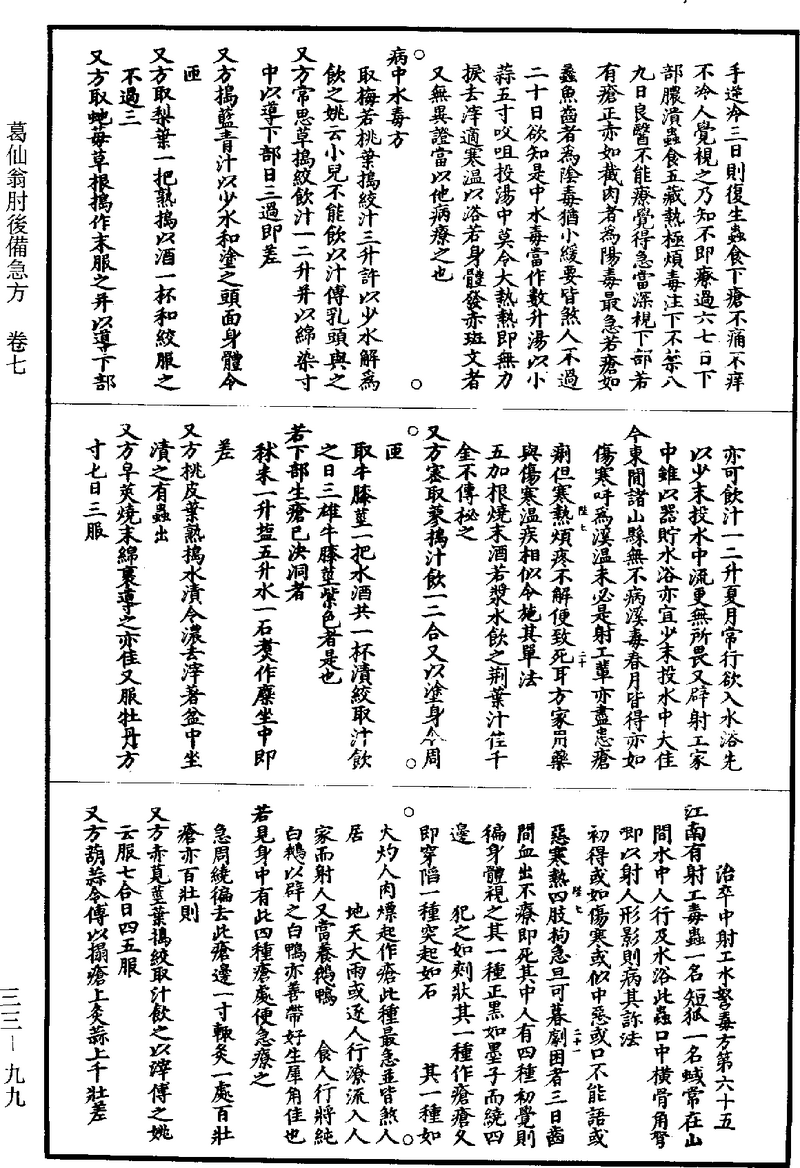 葛仙翁肘後備急方　卷七
手逆冷三日則復生蟲食下瘡不痛不痒
不冷人覺視之乃知不即療過六七日下
部膿潰蟲食五藏熱極煩毒注下不禁八
九日良醫不能療覺得急當深視下部若
有瘡正赤如截肉者為陽毒最急若瘡如
蠡魚齒者為陰毒猶小緩要皆煞人不過
二十日欲知是中水毒當作數升湯以小
蒜五寸㕮咀投湯中莫令大熱熱即無力
捩去滓適寒溫以浴若身體發赤斑文者
又無異證當以他病療之也
病中水毒方
取梅若桃葉搗絞汁三升許以少水解為
飲之姚云小兒不能飲以汁傅乳頭與之
又方常思草搗絞飲汁一二升并以綿染寸
中以導下部日三過即差
又方搗藍青汁以少水和塗之頭面身體令
匝
又方取梨葉一把熟搗以酒一杯和絞服之
不過三
又方取蛇莓草根搗作末服之并以導下部
亦可飲汁一二升夏月常行欲入水浴先
以少末投水中流更無所畏又辟射工家
中雖以器貯水浴亦宜少末投水中大佳
今東間諸山縣無不病溪毒春月皆得亦如
傷寒呼為溪溫未必是射工輩亦盡患瘡
痢但寒熱煩疼不解便致死耳方家用藥
陛七
二十
與傷寒溫疾相似今施其單法
五加根燒末酒若漿水飲之荊葉汁佳千
金不傳秘之
又方密取蓼搗汁飲一二合又以塗身令周
匝
取牛膝莖一把水酒共一杯漬絞取汁飲
之日三雄牛膝莖紫色者是也
若下部生瘡已決洞者
秫米一升鹽五升水一石煑作糜坐中即
差
又方桃皮葉熟搗水漬令濃去滓著盆中坐
漬之有蟲出
又方皁莢燒末綿裹導之亦佳又服牡丹方
寸匕日三服
治卒中射工水弩毒方第六十五
江南有射工毒蟲一名短狐一名蜮常在山
間水中人行及水浴此蟲口中橫骨角弩
唧以射人形影則病其診法
初得或如傷寒或似中惡或口不能語或
陛七
二十一
惡寒熱四肢拘急旦可暮劇困者三日齒
間血出不療即死其中人有四種初覺則
徧身體視之其一種正黑如墨子而繞四
邊　　犯之如刺狀其一種作瘡瘡久
即穿陷一種突起如石　　其一種如
火灼人肉熛起作瘡此種最急並皆煞人
居　　地天大雨或逐人行潦流入人
家而射人又當養鵝鴨　　食人行將純
白鵝以辟之白鴨亦善帶好生犀角佳也
若見身中有此四種瘡處便急療之
急周繞徧去此瘡邊一寸輒灸一處百壯
瘡亦百壯則
又方赤莧莖葉搗絞取汁飲之以滓傅之姚
云服七合日四五服
又方葫蒜令傅以搨瘡上灸蒜上千壯差
三三—九九